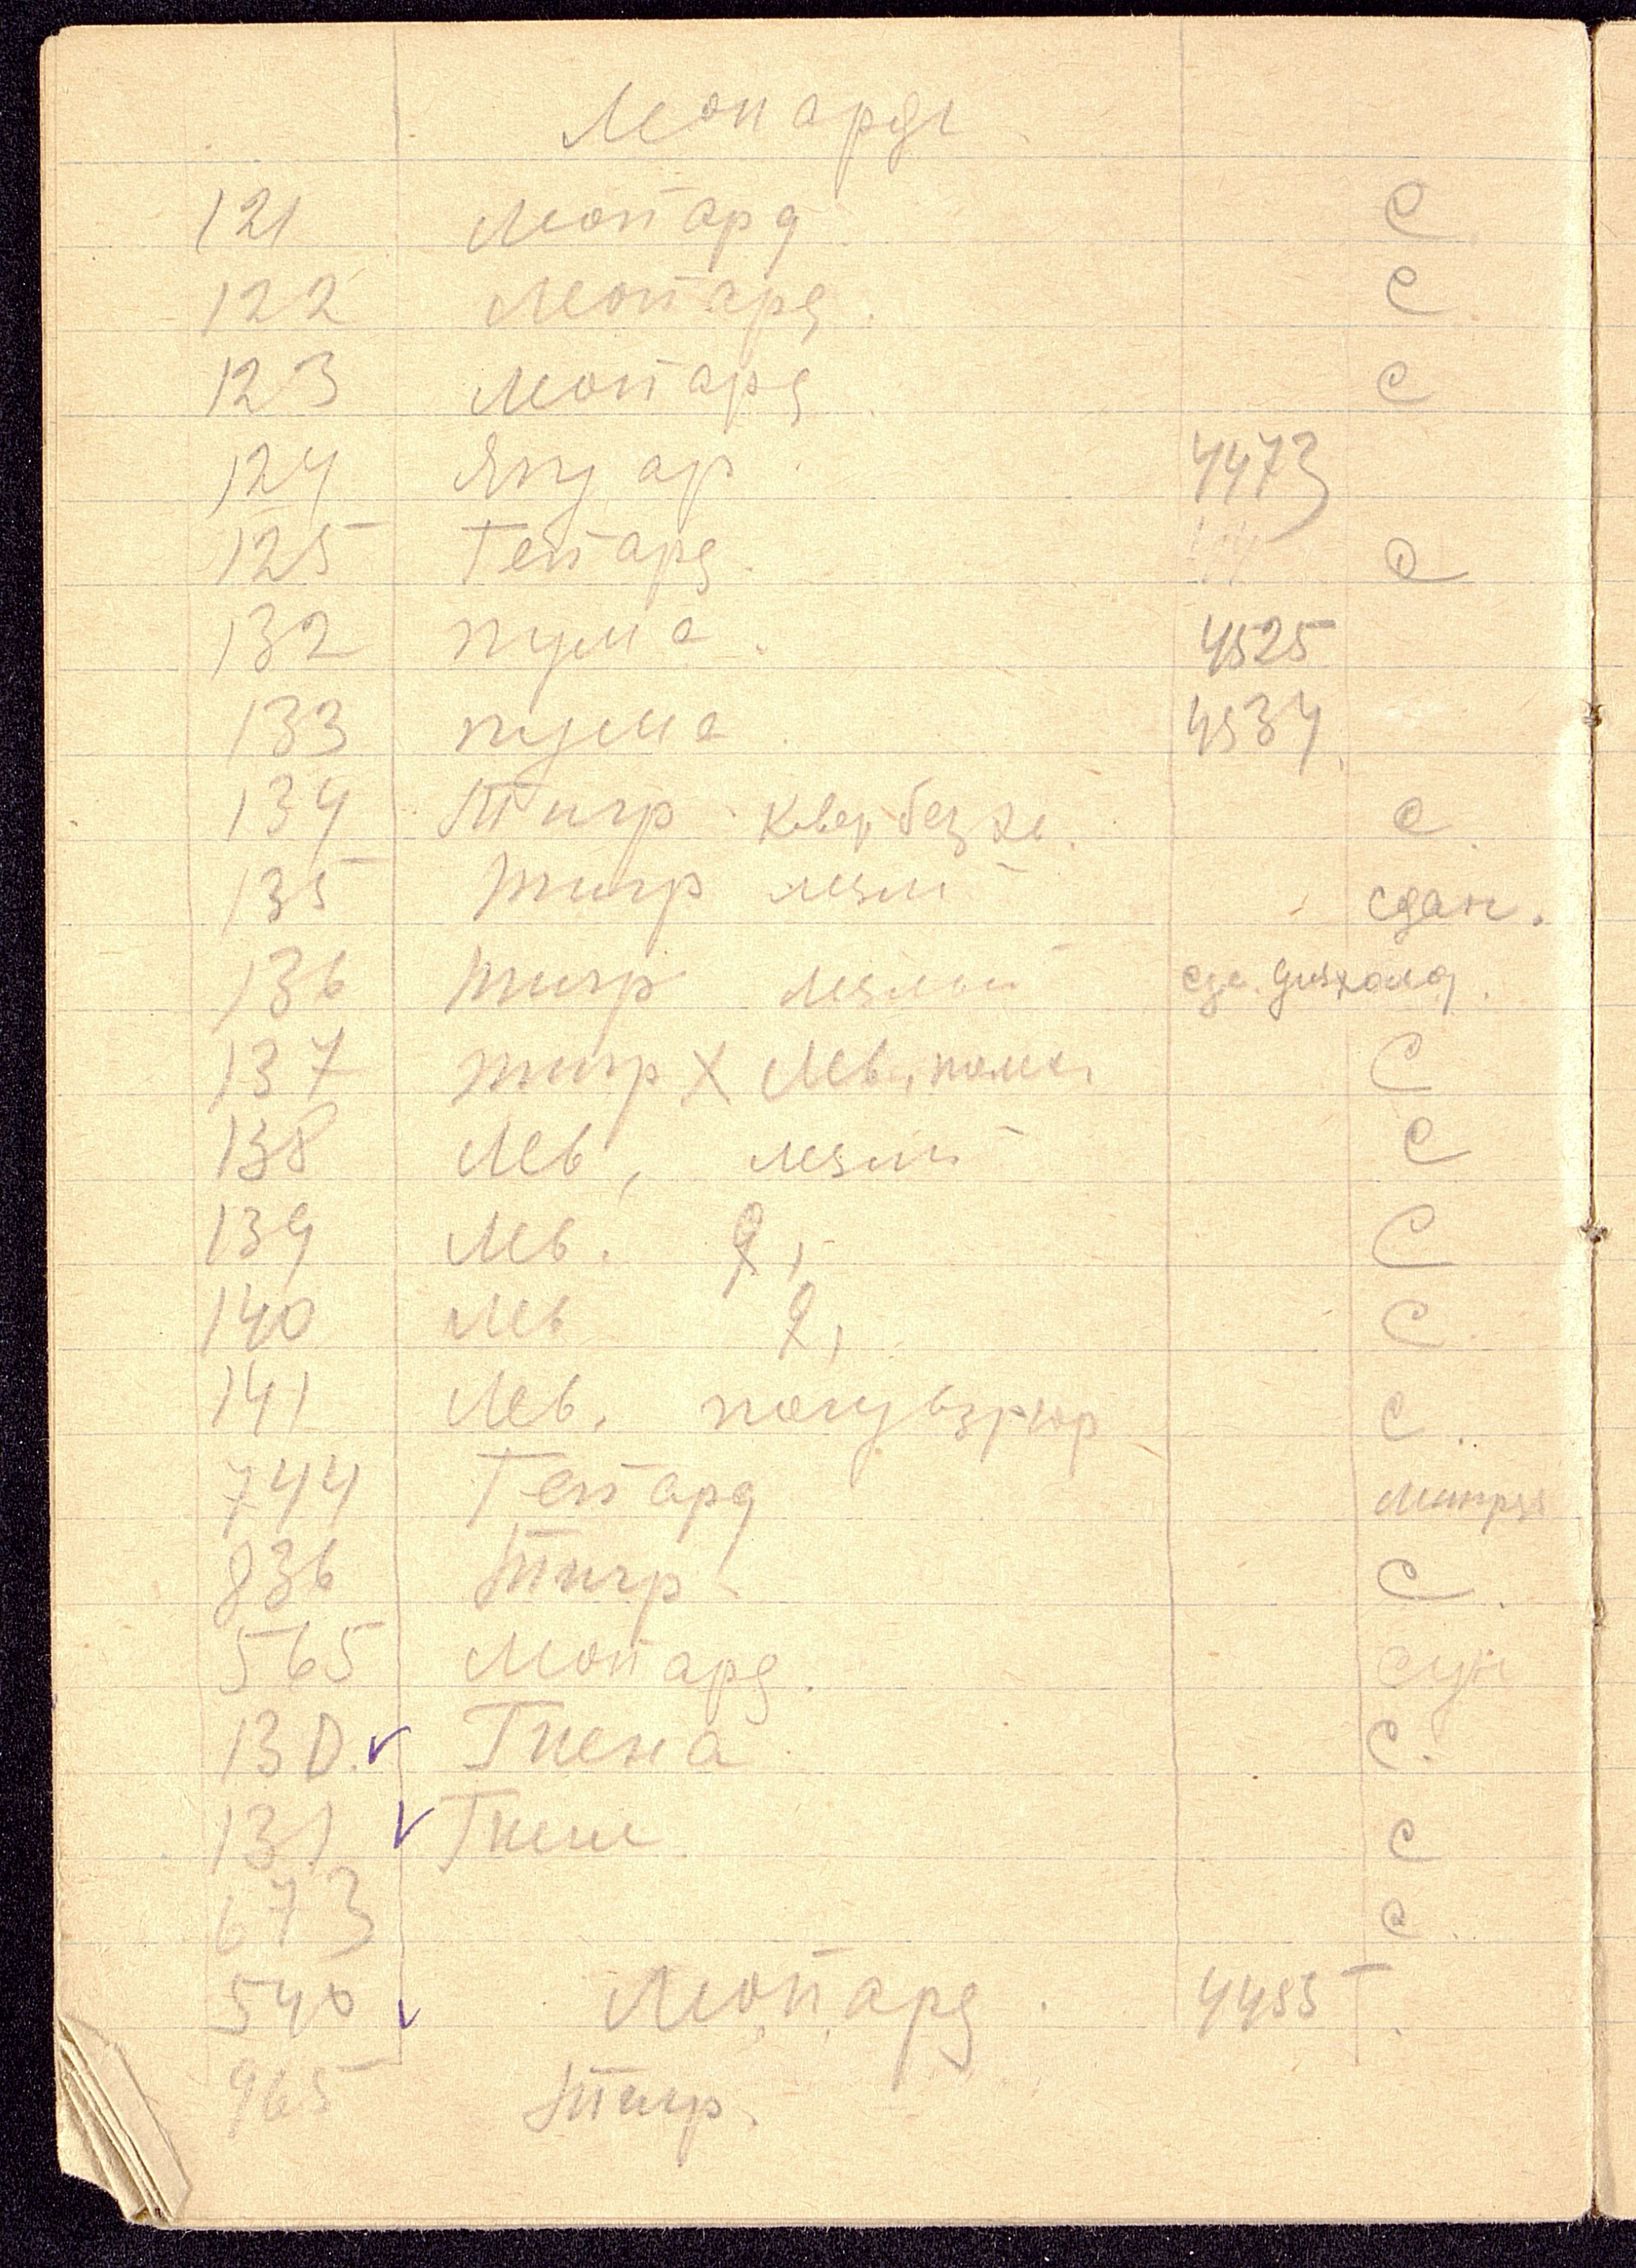 Леопарды
121 Леопард С
122 Леопард. С
123 Леопард. С
124 Ягуар. 4473
125 Гепард. С
132 пума. 4525
133 пума. 4534.
134 Тигр ковер без С.
135 Тигр сдан.
136 Тигр
137 тигр X Лев, С
138 Лев, С
139 Лев. ♀, С
140 Лев ♀, С.
141 Лев. полувзр С.
744 Гепард
836 Тигр С.
565 Леопард.
130. ✓ Гиена. С.
131 ✓ Гиена С
673 С.
540 ✓ Леопард. 4455.
965 Тигр.